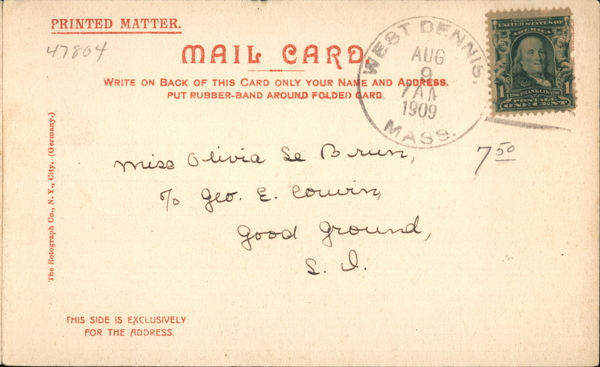 PRINTED MATTER.
47804
MAIL CARD
WRITE ON BACK OF THIS CARD ONLY YOUR NAME AND ADDRESS.
PUT RUBBER-BAND AROUND FOLDED CARD.
WEST DENNIS,
AUG
9
7 AM
1909
MASS.
UNITED STATES OF
AMERICA
1 1
ONE CENT
Miss Olivia Le Brun,
7 50
c/o Geo. E. Corwin,
Good Ground,
L. I.
The Rotograph Co., N. Y., City. (Germany.)
THIS SIDE IS EXCLUSIVELY
FOR THE ADDRESS.